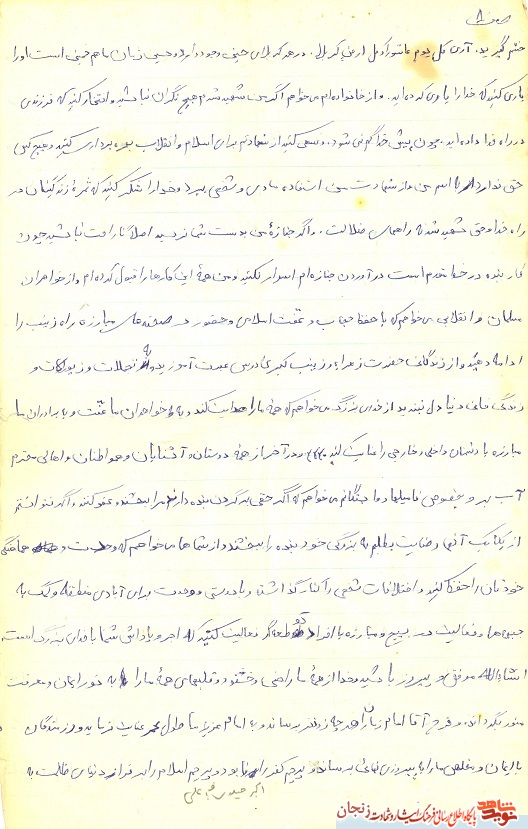 صفحه ۸
چشم گیر بود. آری کل یوم عاشورا کل ارض کربلا. در هر کربلای حسینی وجود دارد و حسین زمان ما هم خمینی است او را
یاری کنید که خدا را یاری کرده‌اید. و از خانواده‌ام می‌خواهم اگر من شهید شدم هیچ نگران نباشید و افتخار کنید که فرزندی
در راه خدا داده‌اید. چون پیش خدا گم نمی‌شود. و سعی کنید از شهادتم برای اسلام و انقلاب بهره برداری کنید و هیچ کس
حق ندارد با اسم من و از شهادت من استفاده مادی و شخصی ببرد و خدا را شکر کنید که ثمره زندگیتان در
راه خدا و حق شهید شد نه راههای ضلالت. و اگر جنازه من بدست شما نرسید اصلاً ناراحت نباشید چون
کار بنده در خط مقدم است در آوردن جنازه‌ام اصرار نکنید و من همه این کارها را قبول کرده‌ام و از خواهران
مسلمان و انقلابی می‌خواهم که با حفظ حجاب و عفت اسلامی و حضور در صحنه‌های مبارزه راه زینب را
ادامه دهید و از زندگانی حضرت زهرا و زینب کبری درس عبرت آموزید و به تجملات و زیورآلات و
زندگی فانی دنیا دل نبندید از خدای بزرگ می‌خواهم که همه ما را هدایت کند و به خواهران ما عفت و به برادران ما
مبارزه با دشمنان داخلی و خارجی را عنایت کند و در آخر از همه دوستان و آشنایان و هموطنان و اهالی محترم
آب بر و بخصوص فامیلها و می‌خواهم که اگر حقی بر گردن بنده دارند مرا ببخشند و عفو کنند و اگر نتوانستم
از یکایک آنها رضایت بطلبم به بزرگی خود بنده را ببخشند و از شماها می‌خواهم که وحدت و هماهنگی
خودتان را حفظ کنید و اختلافات شخصی را کنار گذاشته و با دوستی و وحدت برای آبادی منطقه و کمک به
جبهه‌ها و فعالیت در بسیج و مبارزه با افراد توطئه‌گر فعالیت کنید که اجر و پاداش شما با خدای بزرگ است
انشاءالله موفق و پیروز باشید و خدا از همه ما راضی و خشنود و قلبهای همه ما را به نور ایمان و معرفت
منور بگرداند و فرج آقا امام زمان را هر چه زودتر برساند و به امام عزیز ما طول عمر عنایت فرماید و رزمندگان
با ایمان و مخلص ما را به پیروزی نهائی برساند و پرچم کفر را نابود و پرچم اسلام را بر فراز دنیای ظلمت به
نوید شاهد
پایگاه اطلاع رسانی فرهنگ ایثار و شهادت زنجان